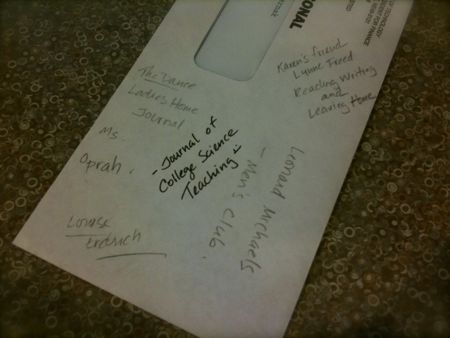 ONAL
TECHNOLOGY
FOR FINANCE
Karen's friend
Lynne Freed
Reading Writing
and
Leaving Home
The Dance
Ladies Home
Journal
Ms.
Oprah.
- Journal of
College Science
Teaching -
Leonard Michaels
- Men's Club.
Louise
Erdrich